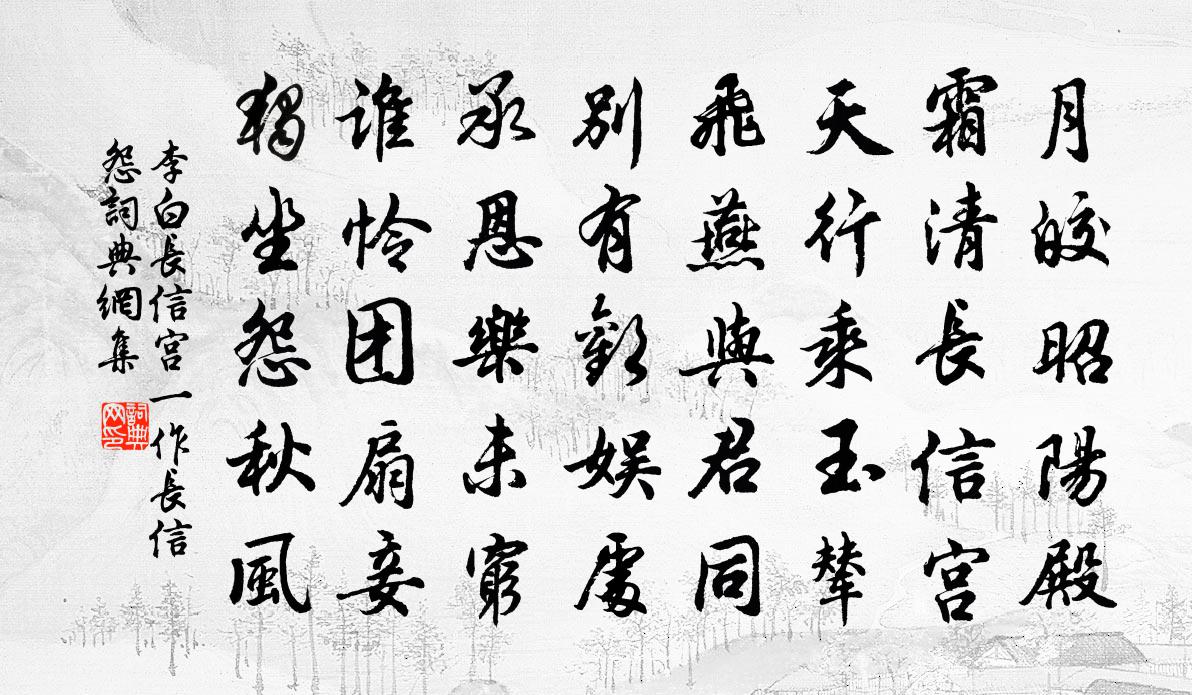 月皎昭陽殿
霜清長信宮
天行乘玉輦
飛燕與君同
別有歡娛處
承恩樂未窮
誰怜团扇妾
獨坐怨秋風
李白長信宮一作長信
怨詞典網集
詞典
网印